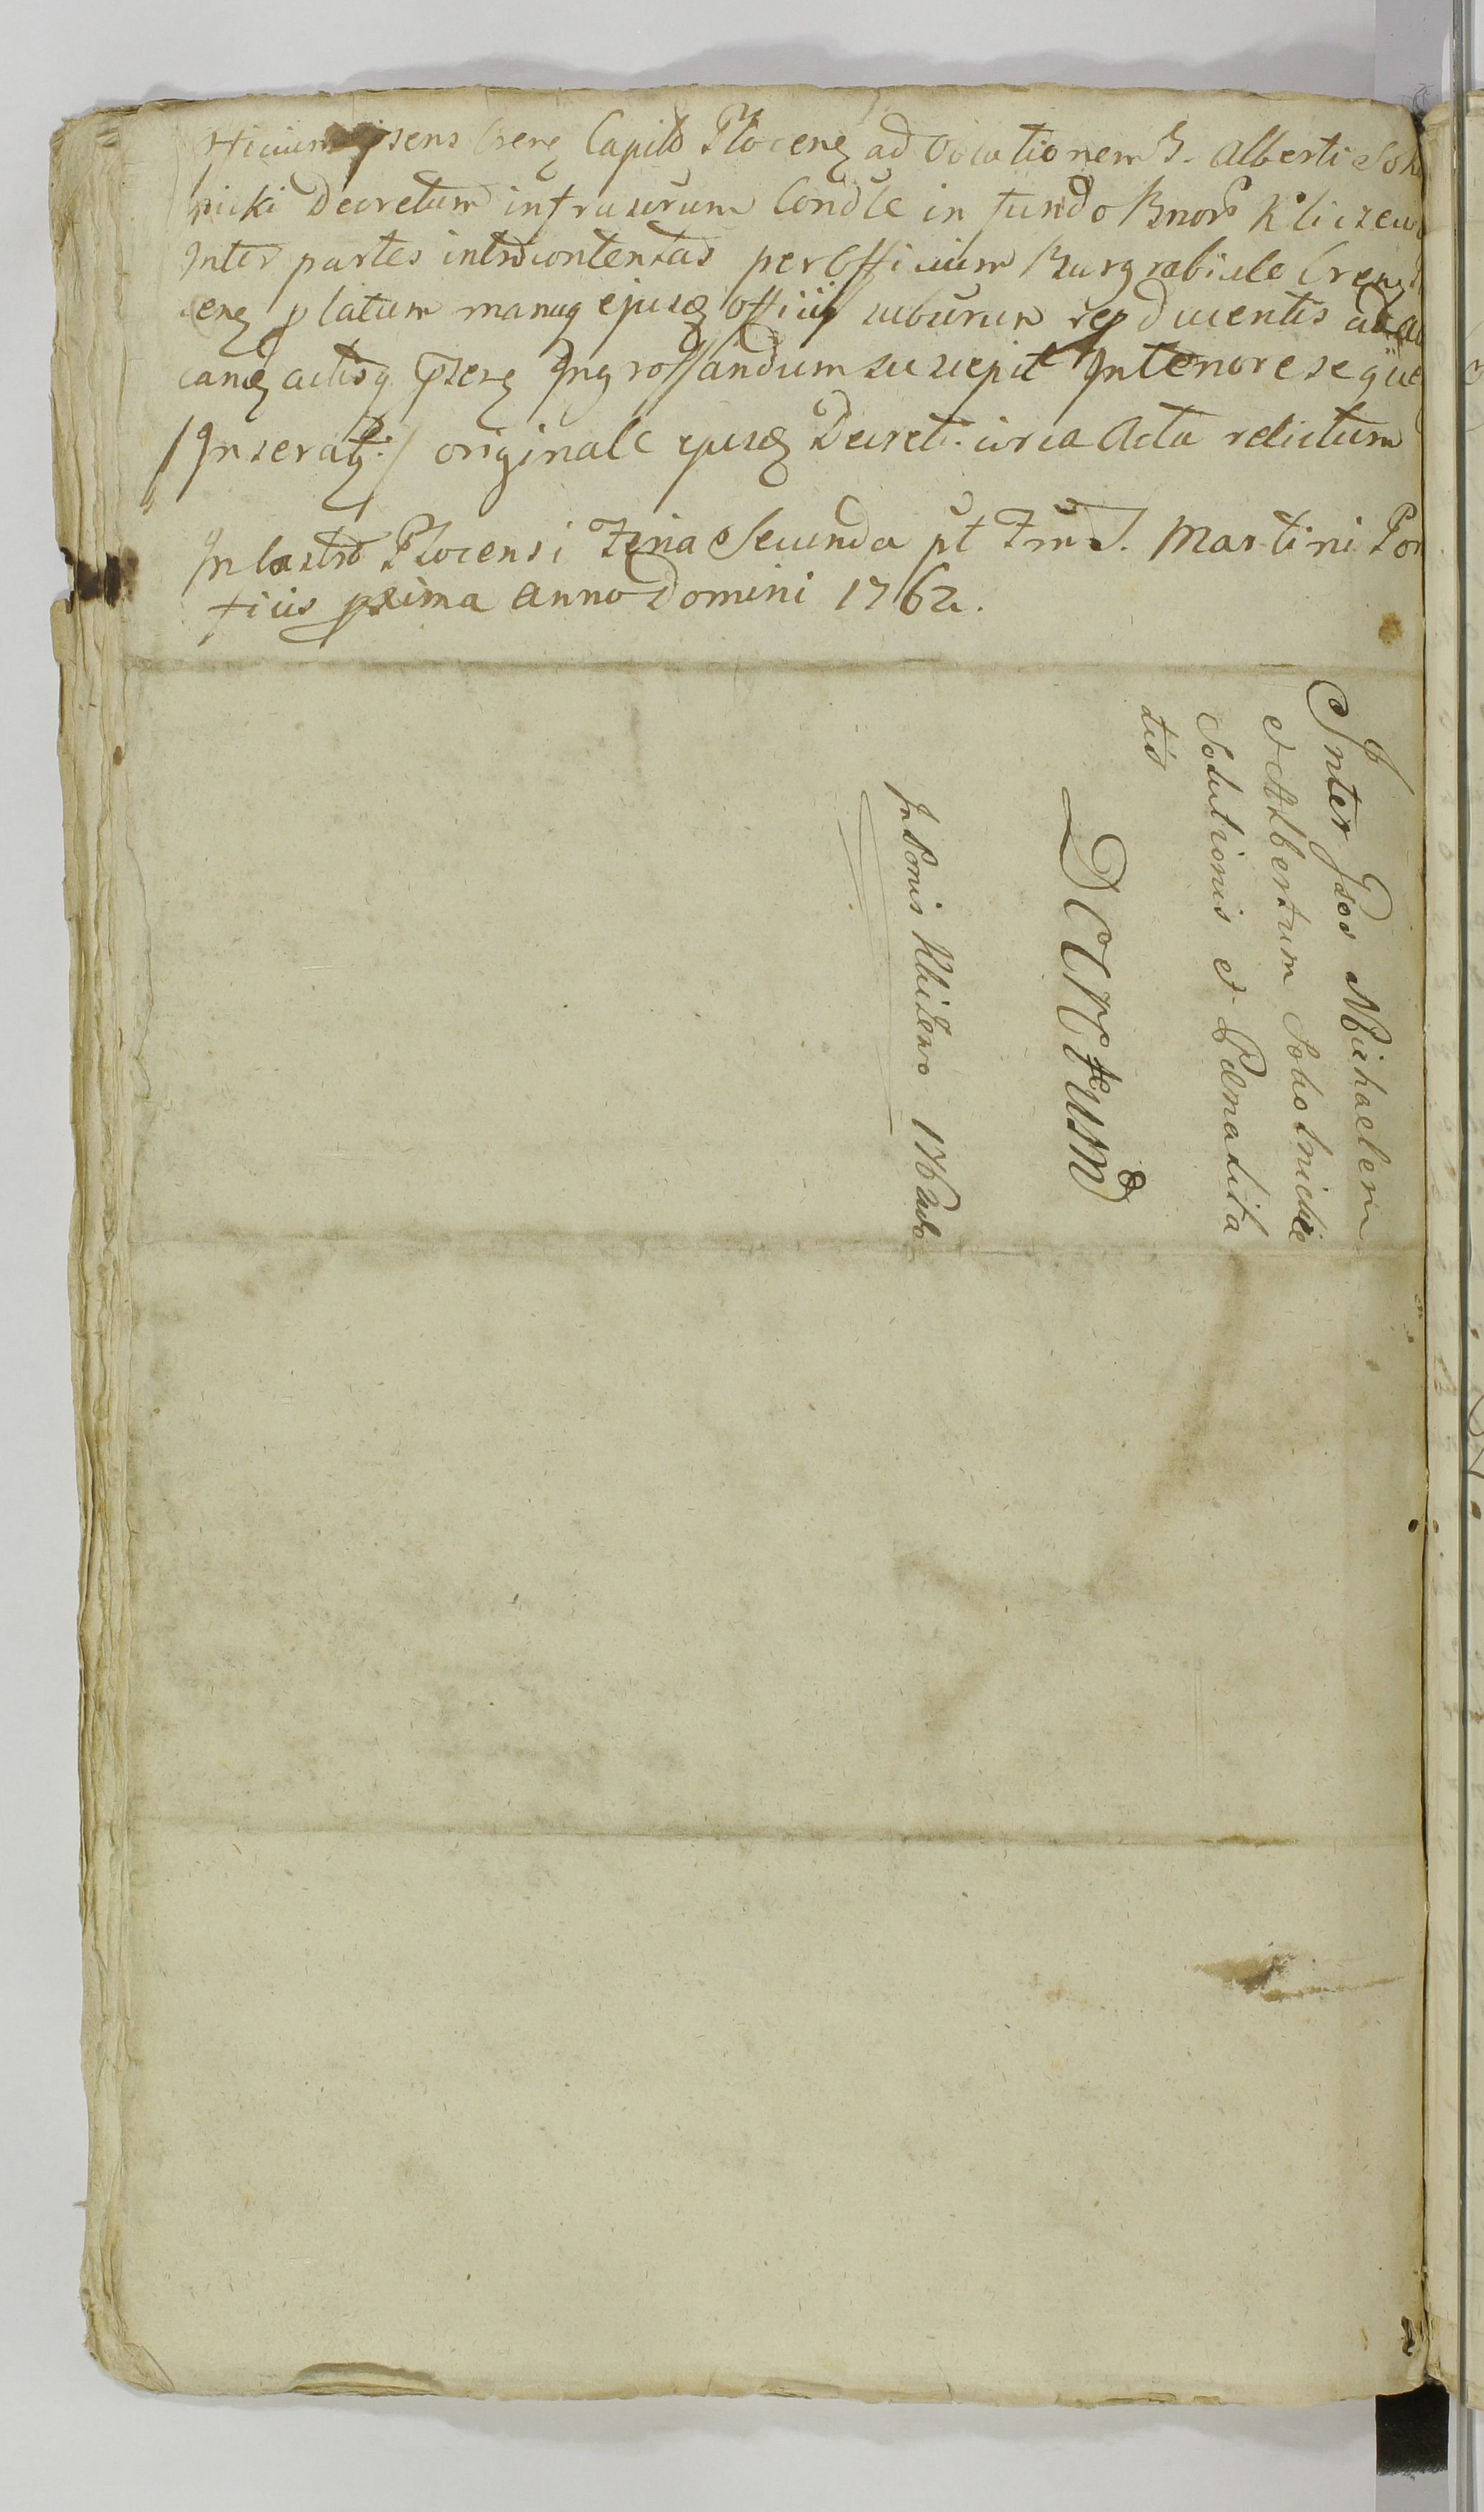 fficium psens Crens Capitß Plocens ad oblationem G. Alberti Sobo
nicki Decretum infrascrum Condle in fundo Bnorß Kliczewo
Inter partes introcontentas per Officium Burgrabiale Crens
cens platum manuq ejusq Officij subscrum repducentis ad
canq actisq psens Ingrossandum suscepit In tenore seque
/Inseratr:/ originale ejusq Decreti circa Acta relictum
In Castro Plocensi Feria Secunda pt Fm S. Martini Pon
ficis pxima Anno Domini 1762.
Inter Gsos Michaelem
et Albertum Sobotnickie
Solutionis et Pænalita
tis
Decretum
In Bonis Kliczewo 1762do